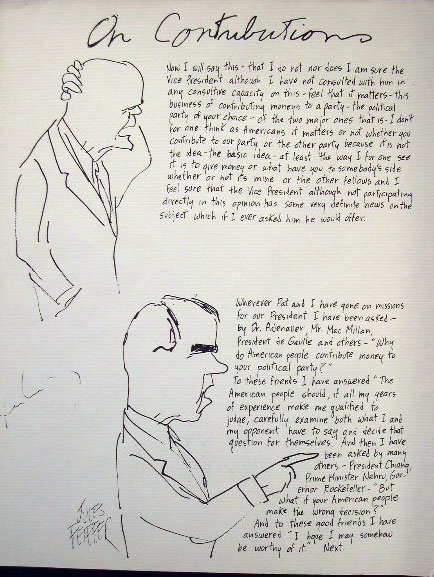 On Contributions
Now I will say this - that I do not nor does I am sure the
Vice President although I have not consulted with him in
any consultive capacity on this - feel that it matters - this
business of contributing moneys to a party - the political
party of your choice - of the two major ones that is - I don't
for one think as Americans it matters or not whether you
contribute to our party or the other party because it is not
the idea - the basic idea - at least the way I for one see
it is to give money or what have you to somebody's side
whether or not it's mine or the other fellows and I
feel sure that the Vice President although not participating
directly in this opinion has some very definite news on the
subject which if I ever asked him he would offer.
Wherever Pat and I have gone on missions
for our President I have been asked -
by Dr. Adenauer, Mr. Mac Millan,
President de Gaulle and others - "Why
do American people contribute money to
your political party?"
To these friends I have answered "The
American people should, if all my years
of experience make me qualified to
judge, carefully examine both what I and
my opponent have to say and decide that
question for themselves." And then I have
been asked by many
others - President Chiang,
Prime Minister Nehru, Gov-
ernor Rockefeller - "But
what if your American people
make the wrong decision?"
And to these good friends I have
answered "I hope I may somehow
be worthy of it." Next.
Jules
FEIFFER